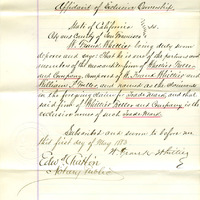 Affidavit of Exclusive Ownership.
State of California } ss.
City and County of San Francisco
W. Frank Whittier being duly sworn
deposes and says: That he is one of the partners and
members of the mercantile firm of Whittier Fuller
and Company, composed of W. Frank Whittier and
William P. Fuller and named as the owners
in the foregoing claim for Trade Mark, and that
said firm of Whittier Fuller and Company is the
exclusive owner of said Trade Mark.
Subscribed and sworn to before me
this first day of May 188
W. Frank Whittier
Notary Public